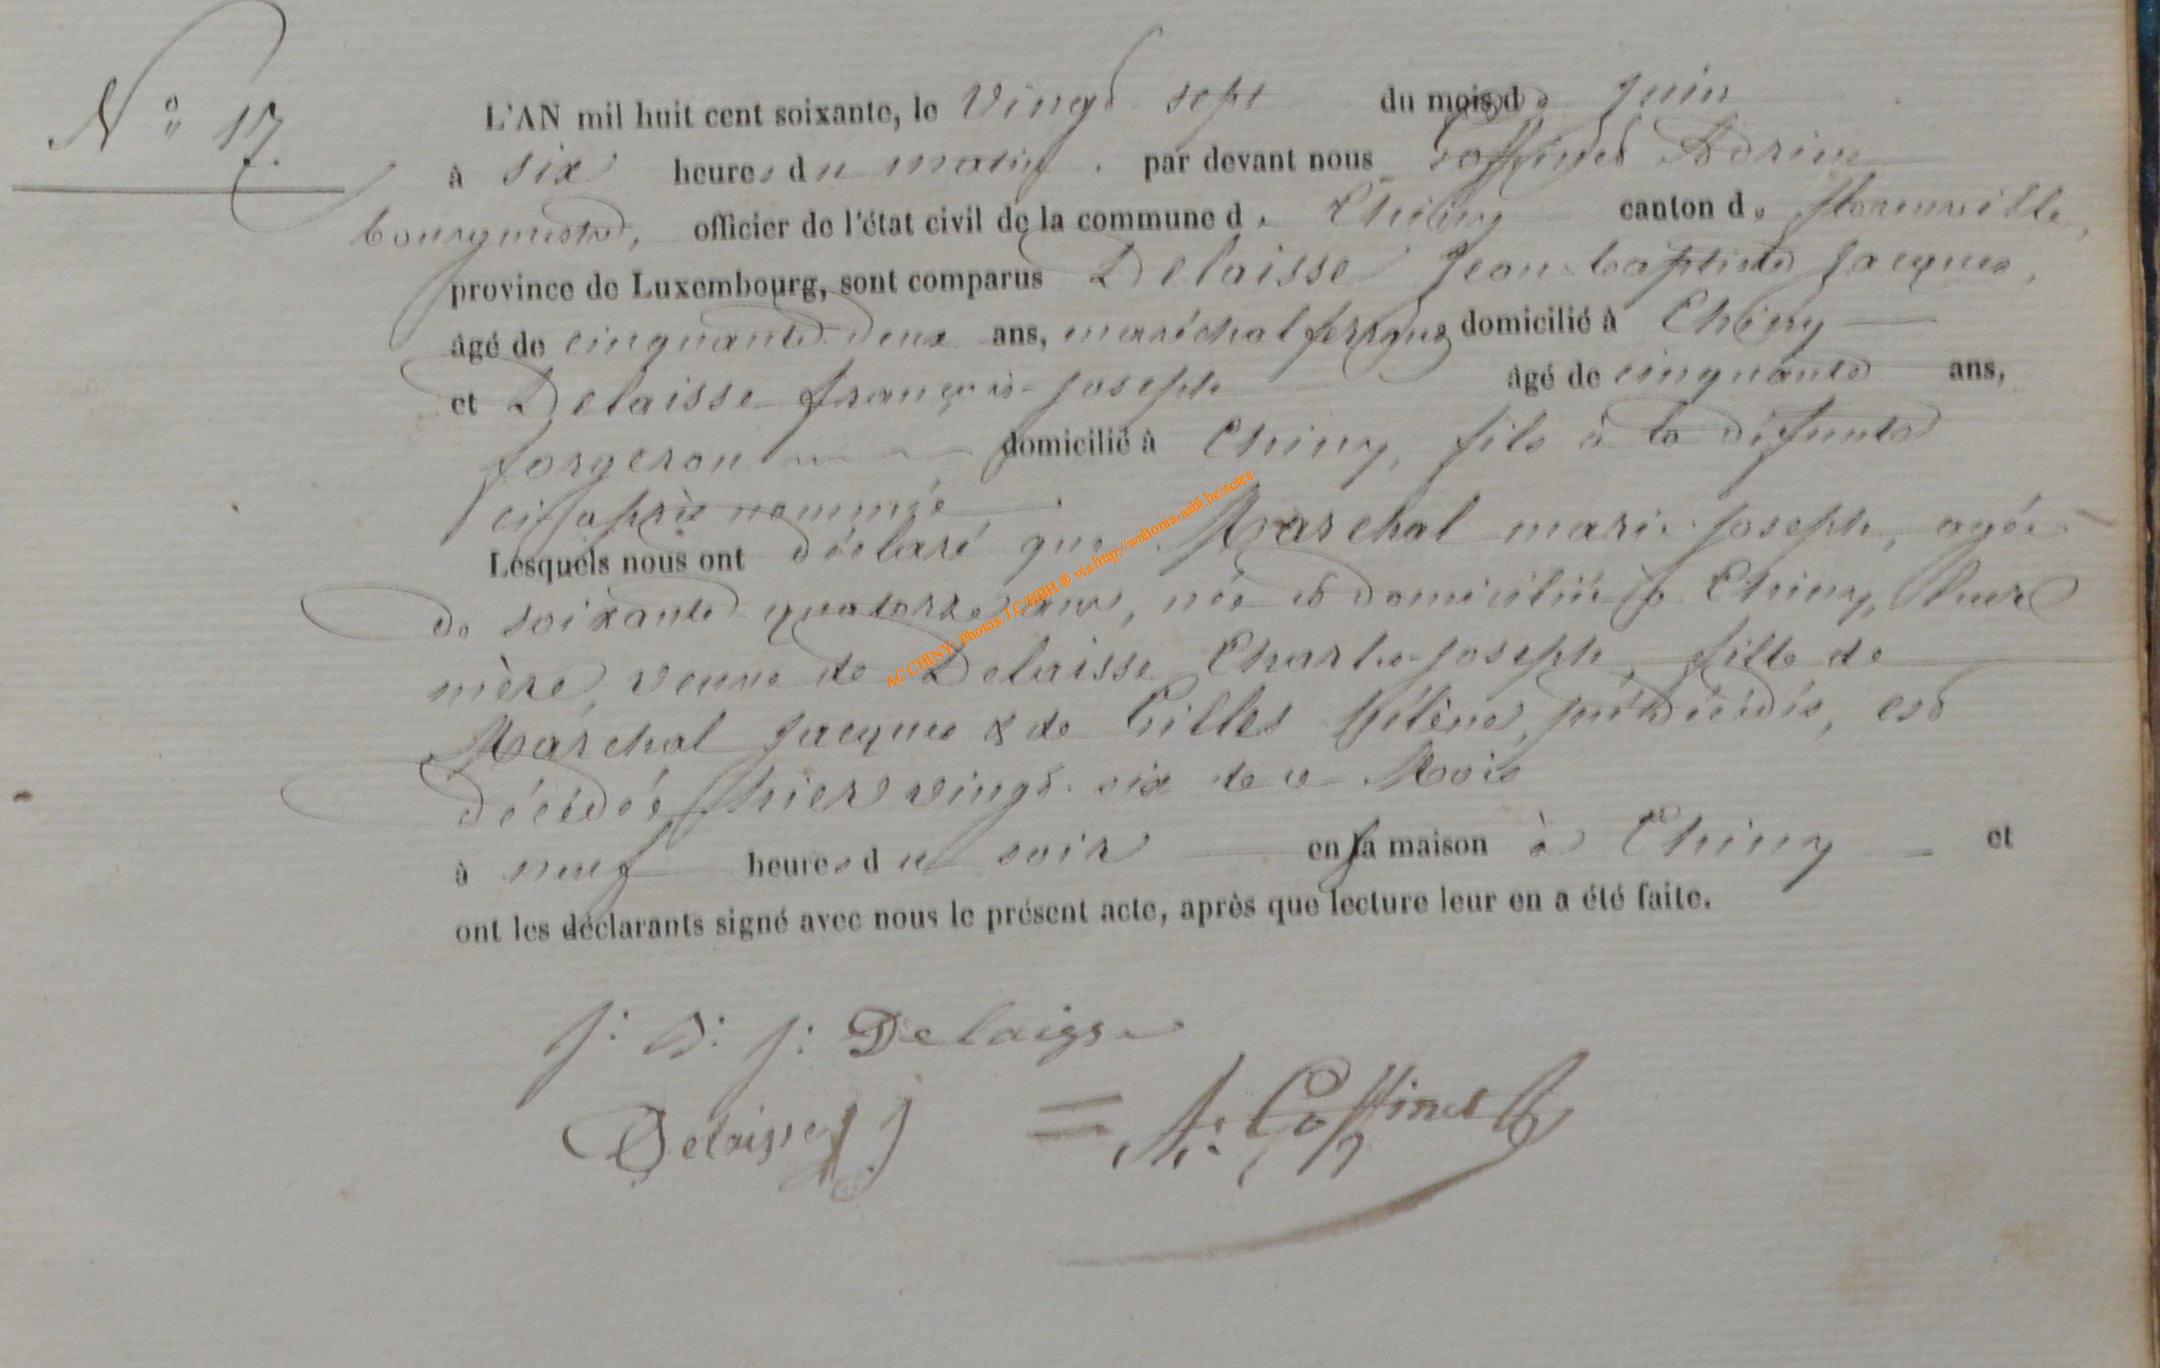 N° 17.
L'AN mil huit cent soixante, le Vingt sept du mois de Juin
à six heures du matin, par devant nous Goffinet Adrien
bourgmestre, officier de l'état civil de la commune de Chiny canton de florenville,
province de Luxembourg, sont comparus Delaisse Jean-baptiste Jacques,
âgé de cinquante-deux ans, maréchal ferrant domicilié à Chiny
et Delaisse françois-Joseph âgé de cinquante ans,
forgeron domicilié à Chiny, fils à la défunte
ci-après nommée,
Lesquels nous ont déclaré que Marchal marie-Joseph, agée
de soixante quatorze ans, née et domiciliée à Chiny, leur
mère, veuve de Delaisse Charles-Joseph, fille de
Marchal Jacques & de Gilles hélène, prédécédés, est
décédée hier vingt-six de ce Mois
à neuf heures du soir en sa maison à Chiny et
ont les déclarants signé avec nous le présent acte, après que lecture leur en a été faite.
J: B: J: Delaisse
Delaisse f J
= A: Goffinet
AC CHINY - Photos J.C./HBH ® via http://wallonia-asbl.be/actes